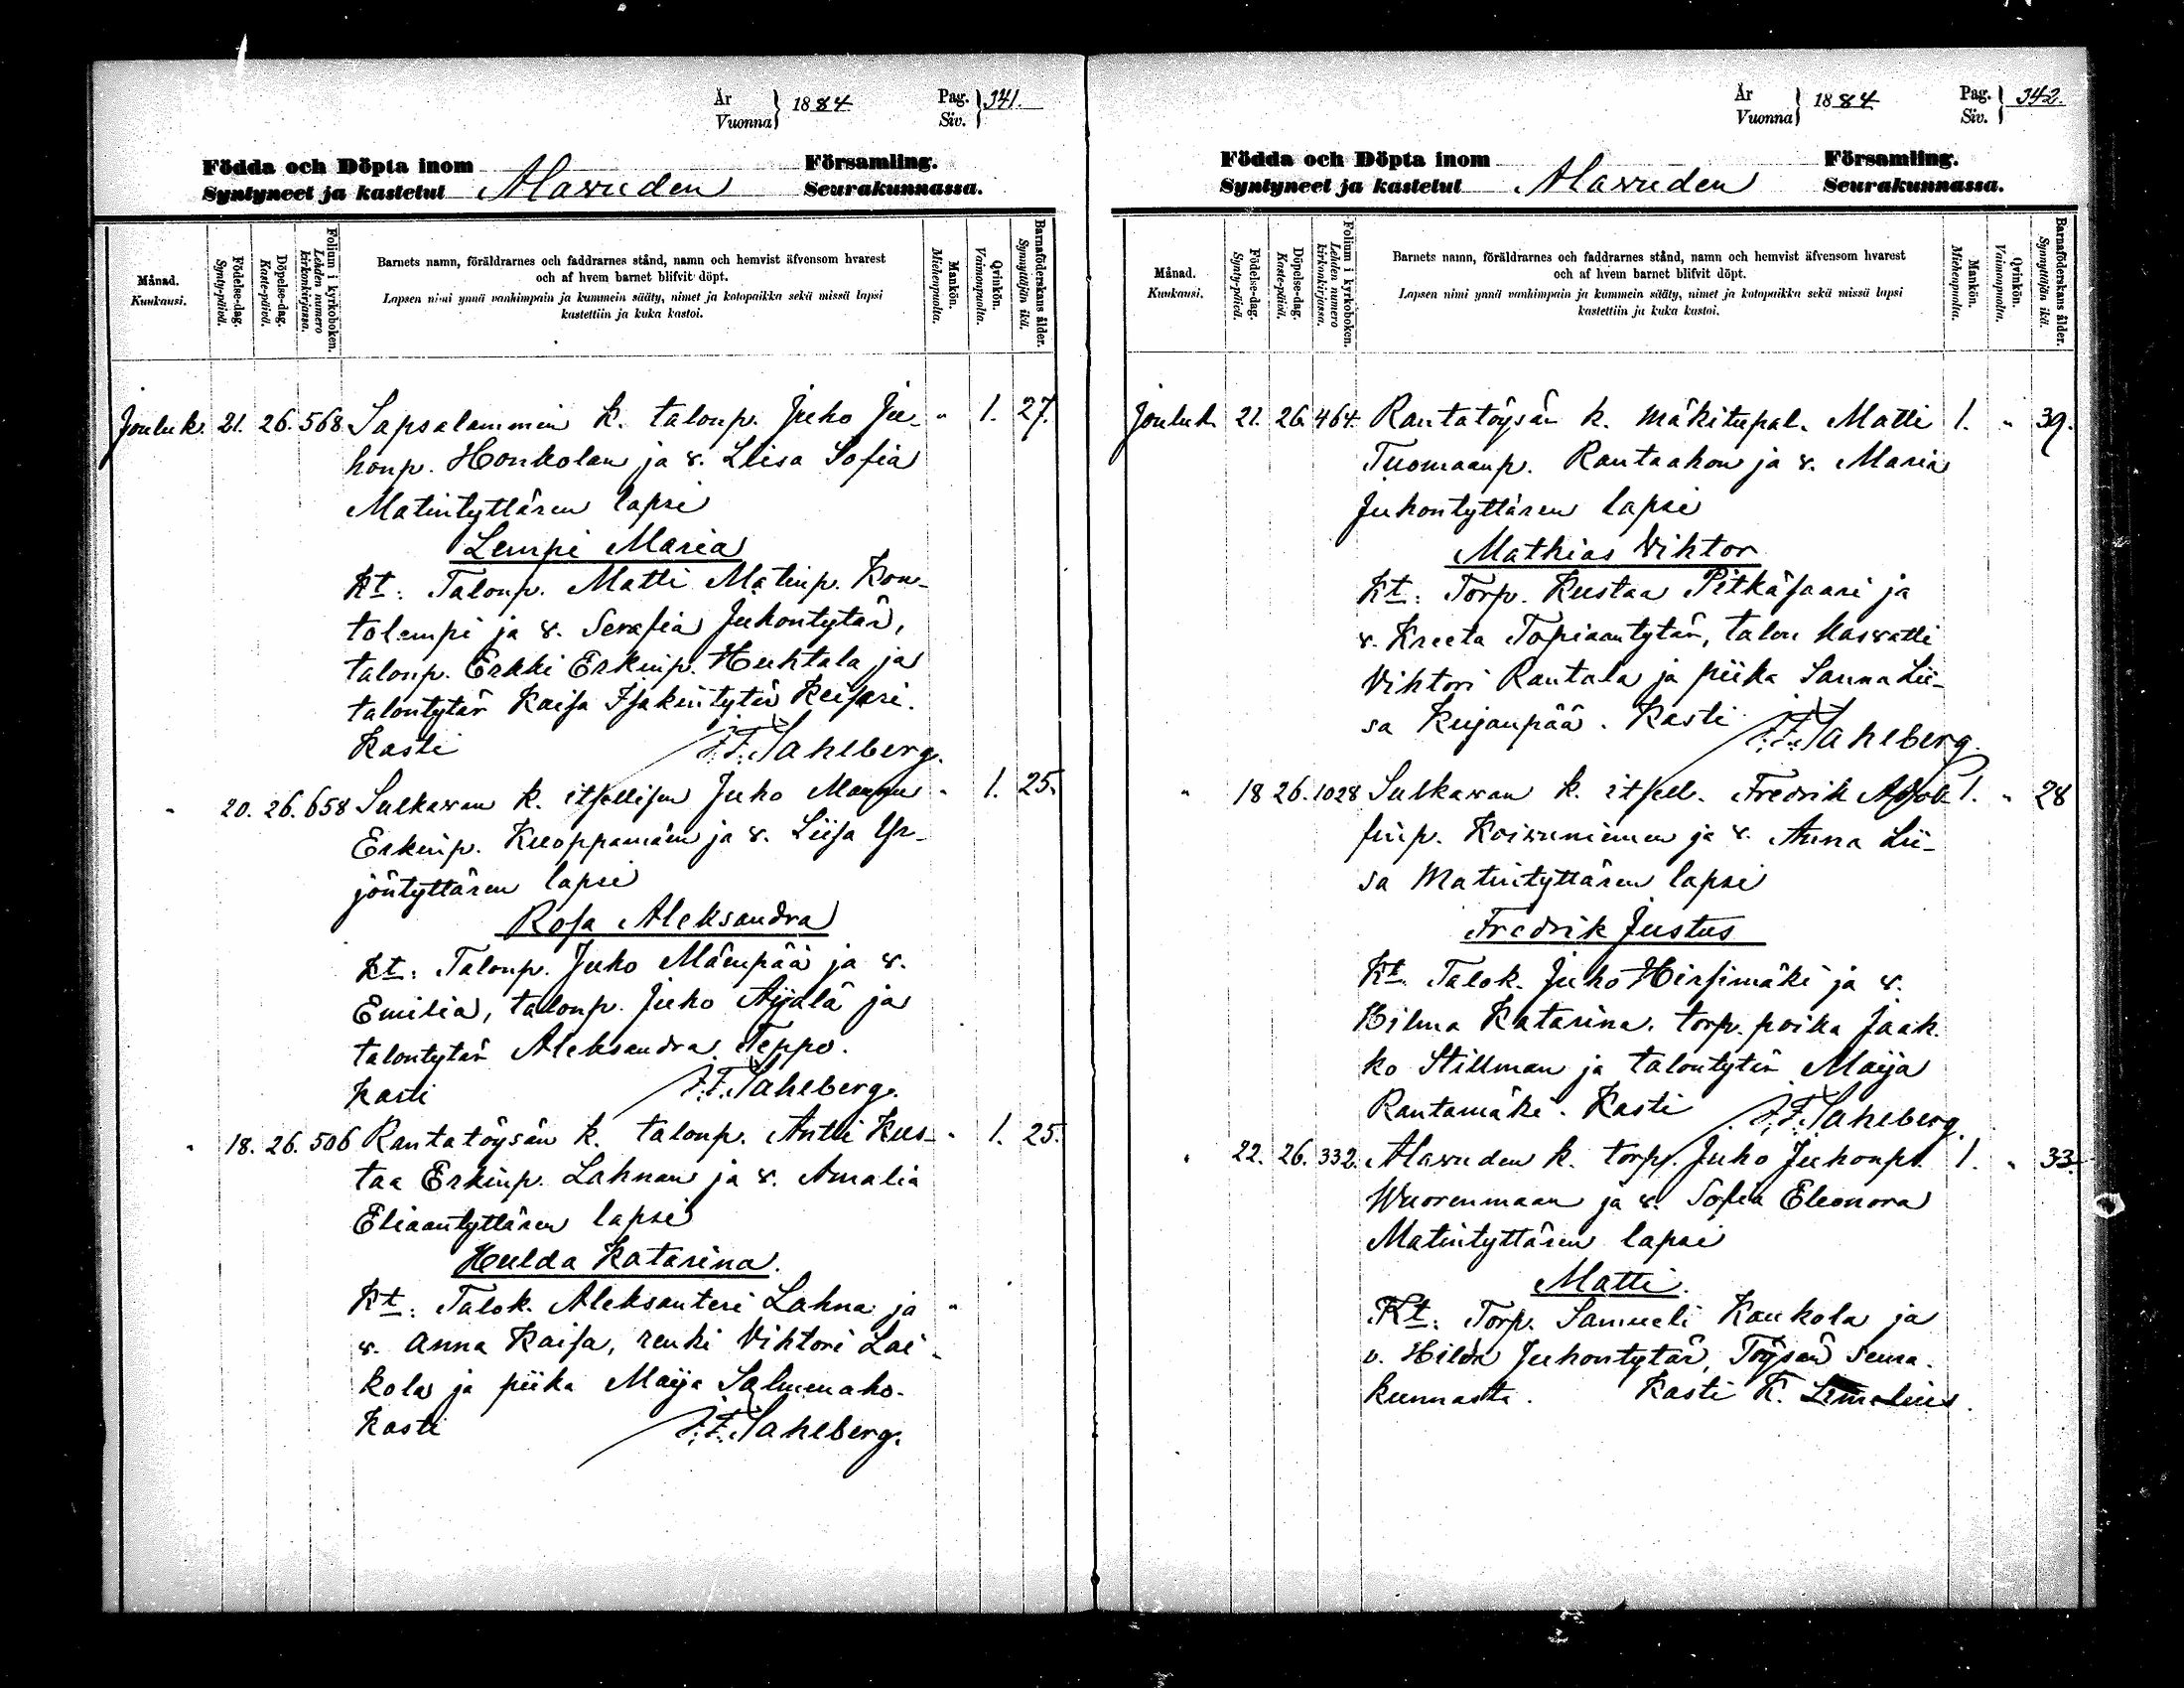 År
Vuonna } 1884 Pag.
Siv. } 341.
Födda och Döpta inom Församling.
Syntyneet ja kastetut Alavuden Seurakunnassa.
Månad.
Kuukausi.
Födelse-dag.
Synty-päivä.
Döpelse-dag.
Kaste-päivä.
Folium i kyrkoboken.
Lehden numero kirkonkirjassa.
Barnets namn, föräldrarnes och faddrarnes stånd, namn och hemvist äfvensom hvarest
och af hvem barnet blifvit döpt.
Lapsen nimi ynnä vanhimpain ja kummein sääty, nimet ja kotopaikka sekä missä lapsi
kastettiin ja kuka kastoi.
Mankön.
Miehenpuolta.
Qvinkön.
Vaimonpuolta.
Barnaföderskans ålder.
Synnyttäjän ikä.
Jouluk. 21. 26. 568 Sapsalammin k. talonp. Juho Ju- " 1. 27.
honp. Honkolan ja v. Liisa Sofia
Matintyttären lapsi
Lempi Maria
Kt: Talonp. Matti Matinp. Kon-
tolempi ja v. Serafia Juhontytär,
talonp. Erkki Erkinp. Huhtala ja
talontytär Kaisa Isakintytär
Kasti J. F. Sahlberg.
" 20. 26. 658 Sulkavan k. itsellisen Juho " 1. 25.
Erkinp. Kuoppamäen ja v. Liisa Yr-
jöntyttären lapsi
Rosa Aleksandra
Kt: Talonp. Juho Mäenpää ja v.
Emilia, talonp. Juho Äijälä ja
talontytär Aleksandra Teppo.
Kasti J. F. Sahlberg.
" 18. 26. 506 Rantatöysän k. talonp. Antti Kus- " 1. 25.
taa Erkinp. Lahnan ja v. Amalia
Eliaantyttären lapsi
Hulda Katarina.
Kt: Talok. Aleksanteri Lahna ja "
v. Anna Kaisa, renki Vihtori Lai-
kola ja piika Maija Salmenaho.
Kasti J. F. Sahlberg.
År
Vuonna } 1884 Pag.
Siv. } 342.
Födda och Döpta inom Församling.
Syntyneet ja kastetut Alavuden Seurakunnassa.
Månad.
Kuukausi.
Födelse-dag.
Synty-päivä.
Döpelse-dag.
Kaste-päivä.
Folium i kyrkoboken.
Lehden numero kirkonkirjassa.
Barnets namn, föräldrarnes och faddrarnes stånd, namn och hemvist äfvensom hvarest
och af hvem barnet blifvit döpt.
Lapsen nimi ynnä vanhimpain ja kummein sääty, nimet ja kotopaikka sekä missä lapsi
kastettiin ja kuka kastoi.
Mankön.
Miehenpuolta.
Qvinkön.
Vaimonpuolta.
Barnaföderskans ålder.
Synnyttäjän ikä.
Jouluk. 21. 26. 464. Rantatöysän k. mäkitupal. Matti 1. " 39.
Tuomaanp. Rantaahon ja v. Maria
Juhontyttären lapsi
Mathias Vihtor
Kt: Torp. Kustaa Pitkäsaari ja
v. Kreeta Topiaantytär, talon kasvatti
Vihtori Rantala ja piika Sanna Lii-
sa Kujanpää. Kasti J. F. Sahlberg.
" 18 26. 1028 Sulkavan k. itsell. Fredrik Adol- 1. " 28
finp. Koivuniemen ja v. Anna Lii-
sa Matintyttären lapsi
Fredrik Justus
Kt. Talok. Juho Hirsimäki ja v.
Hilma Katarina. torp. poika Jaak-
ko Stillman ja talontytär Maija
Rantamäki. Kasti J. F. Sahlberg.
" 22. 26. 332. Alavuden k. torpp. Juho Juhonp. 1. " 33.
Wuorenmaan ja v. Sofia Eleonora
Matintyttären lapsi
Matti.
Kt: Torp. Samueli Kaukola ja
v. Hilda Juhontytär, Töysän seura-
kunnasta. Kasti K.